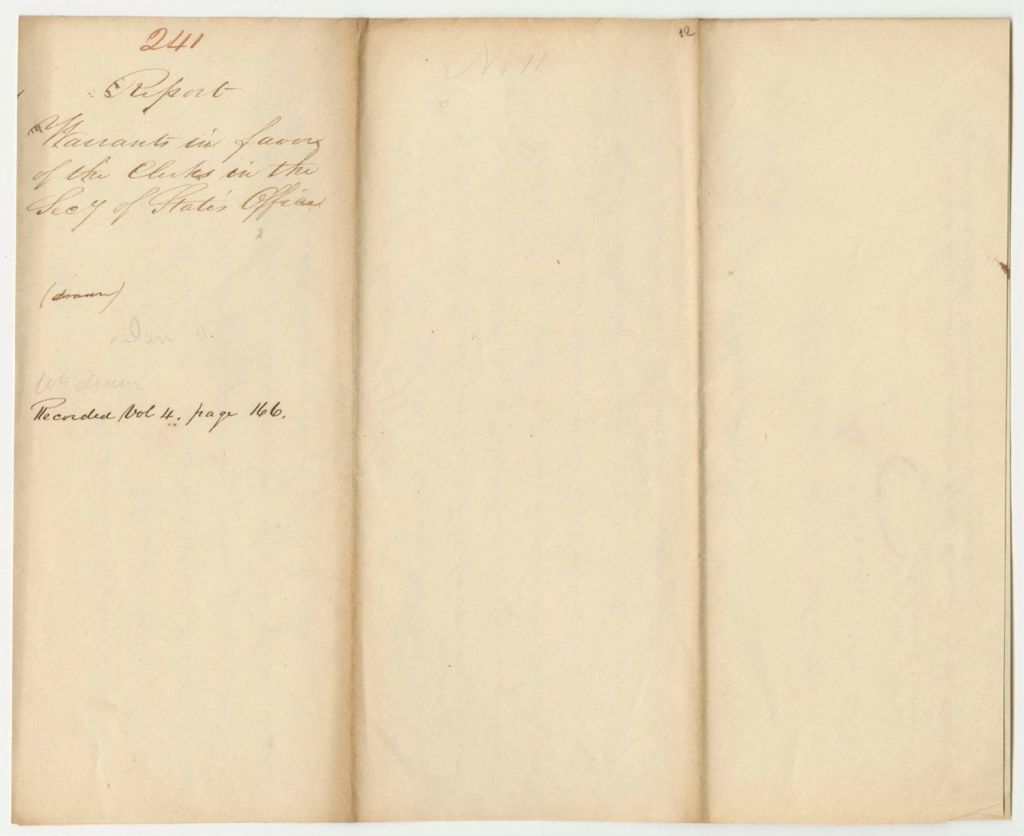 241
Report
Warrants in favor
of the Clerks in the
Secy of State's Office
(drawn)
Jan 3.
Wts drawn
Recorded Vol 4. page 166.
No 11
12